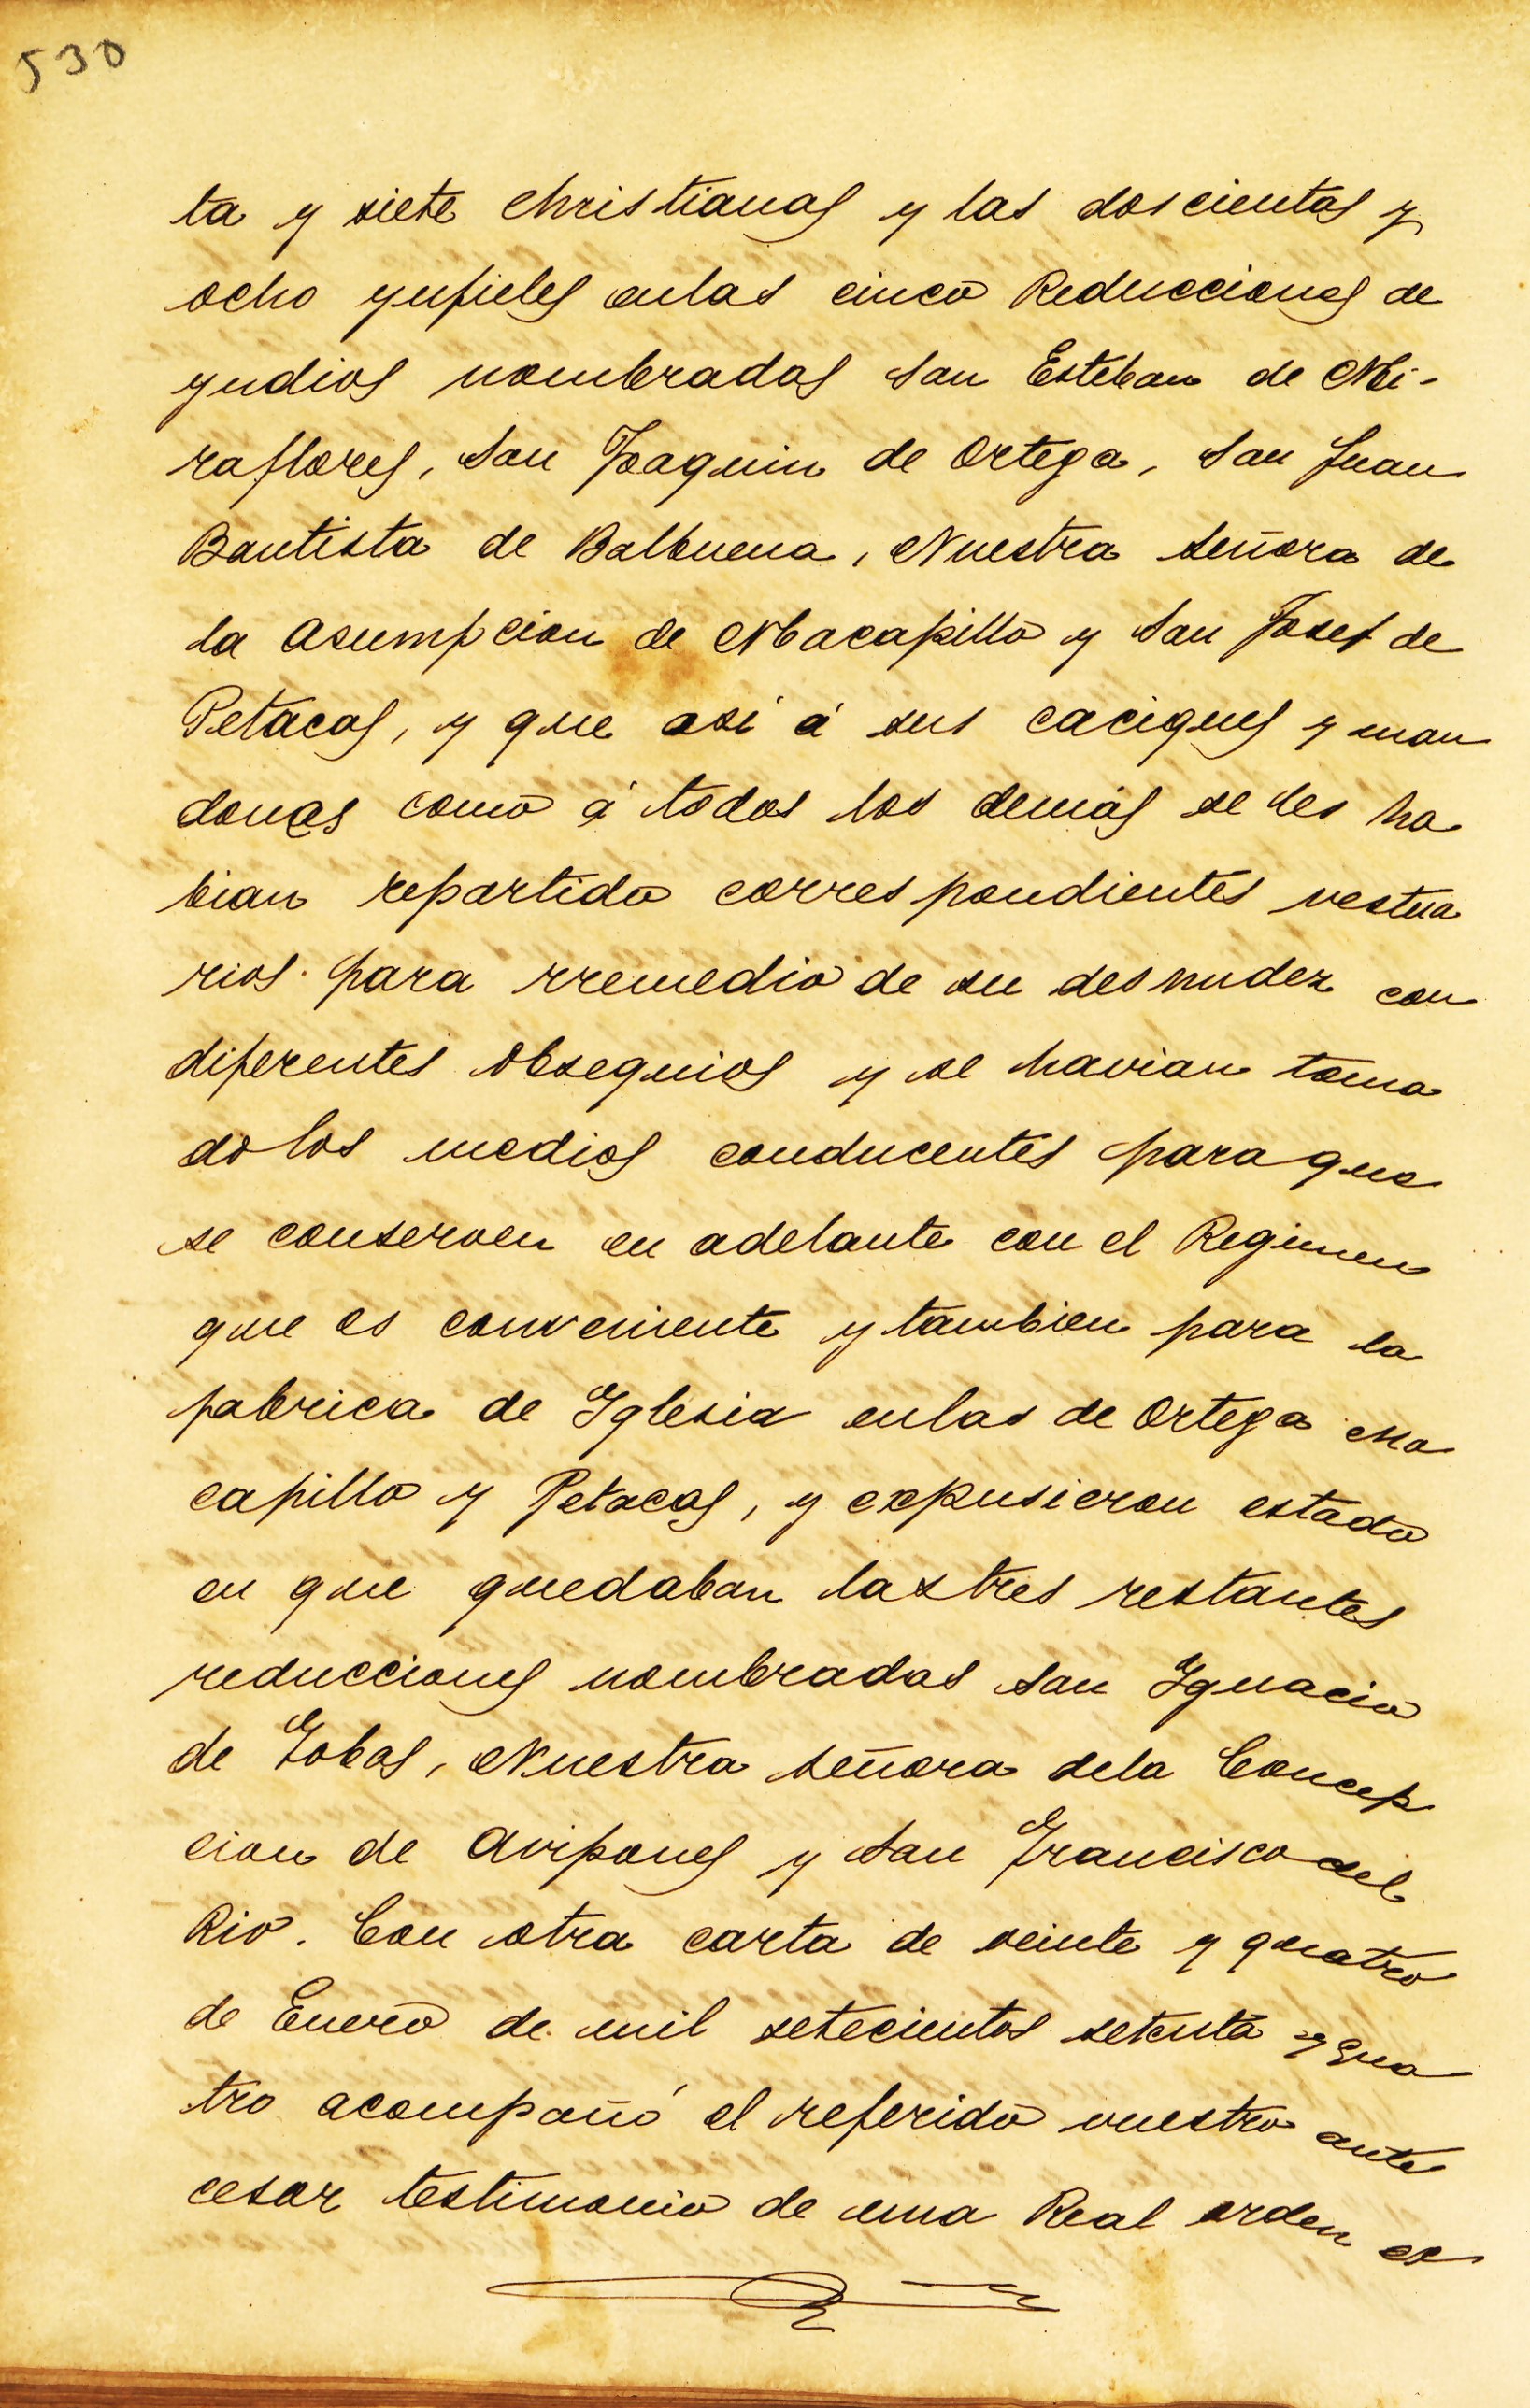 530
ta y siete christianas y las doscientas y
ocho ynfieles enlas cinco Reducciones de
yndios nombradas San Esteban de Mi-
raflores, San Joaquin de Ortega, San Juan
Bautista de Balbuena, Nuestra Señora de
la Asumpcion de Macapillo y San Josef de
Petacas, y que asi á sus caciques y man
dones como á todos los demás se les ha
bian repartido correspondientes vestua
rios para rremedio de su desnudez con
diferentes obsequios y se havian toma
do los medios conducentes para que
se conserven en adelante con el Regimen
que es conveniente y tambien para la
fabrica de Iglesia enlas de Ortega Ma
capillo y Petacas, y expusieron estado
en que quedaban las tres restantes
reducciones nombradas San Ignacio
de Tobas, Nuestra Señora dela Concep
cion de Avipones y San Francisco del
Rio. Con otra carta de veinte y quatro
de Enero de mil setecientos setenta y qua
tro acompañó el referido vuestro ante
cesor testimonio de una Real orden ex